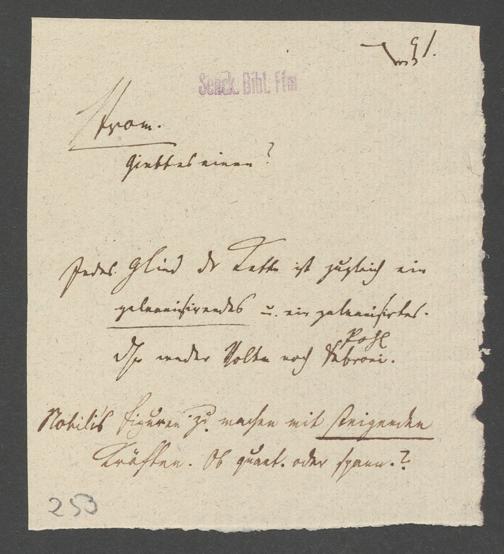 91.
Senck. Bibl. Ffm
Strom.
Giebt es einen?
Jedes Glied der Kette ist zugleich ein
galvanisirendes u. ein galvanisirtes.
Pohl
weder Volta noch Fabroni.
Nobili's Figuren zu machen mit steigenden
Kräften. Ob quant. oder spann.?
253